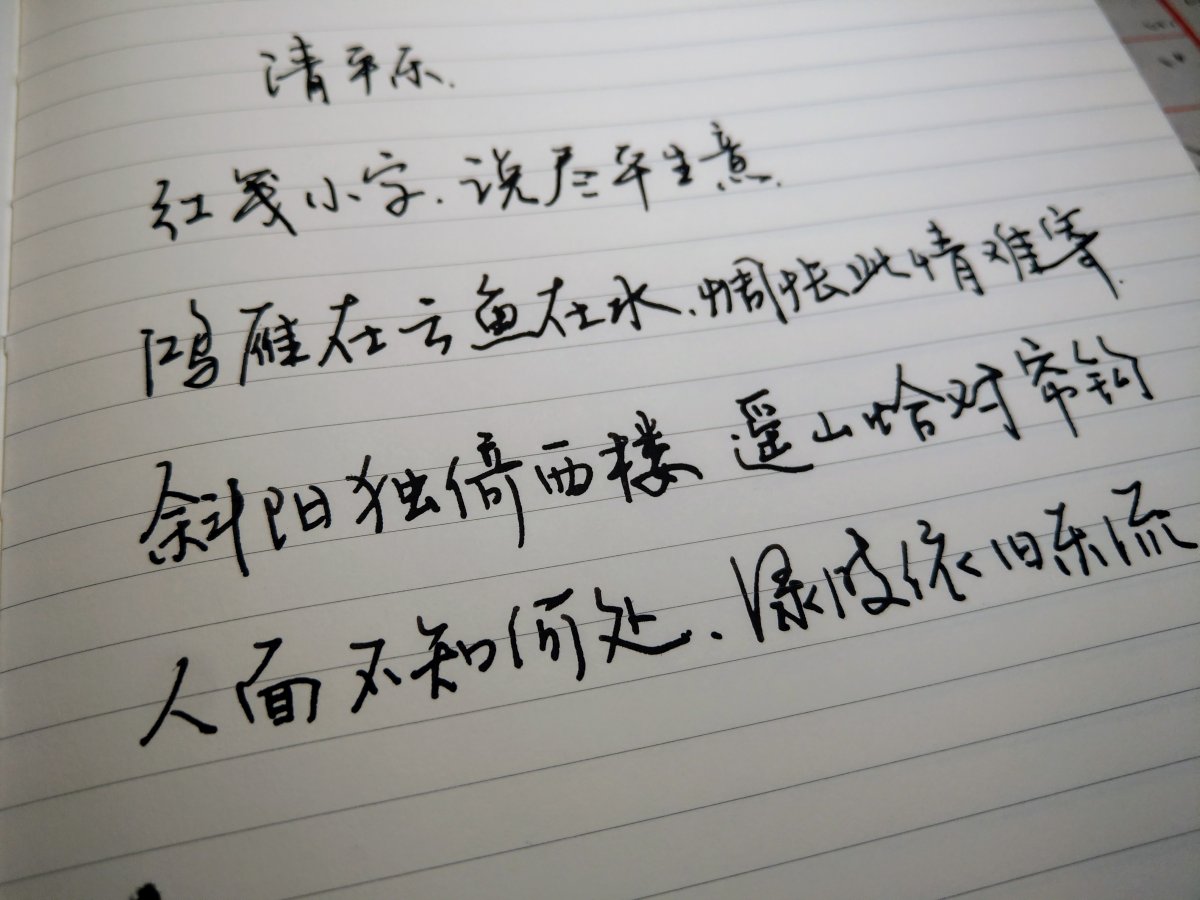 清平乐.
红笺小字.说尽平生意.
鸿雁在云鱼在水.惆怅此情难寄.
斜阳独倚西楼 遥山恰对帘钩
人面不知何处.渌波依旧东流